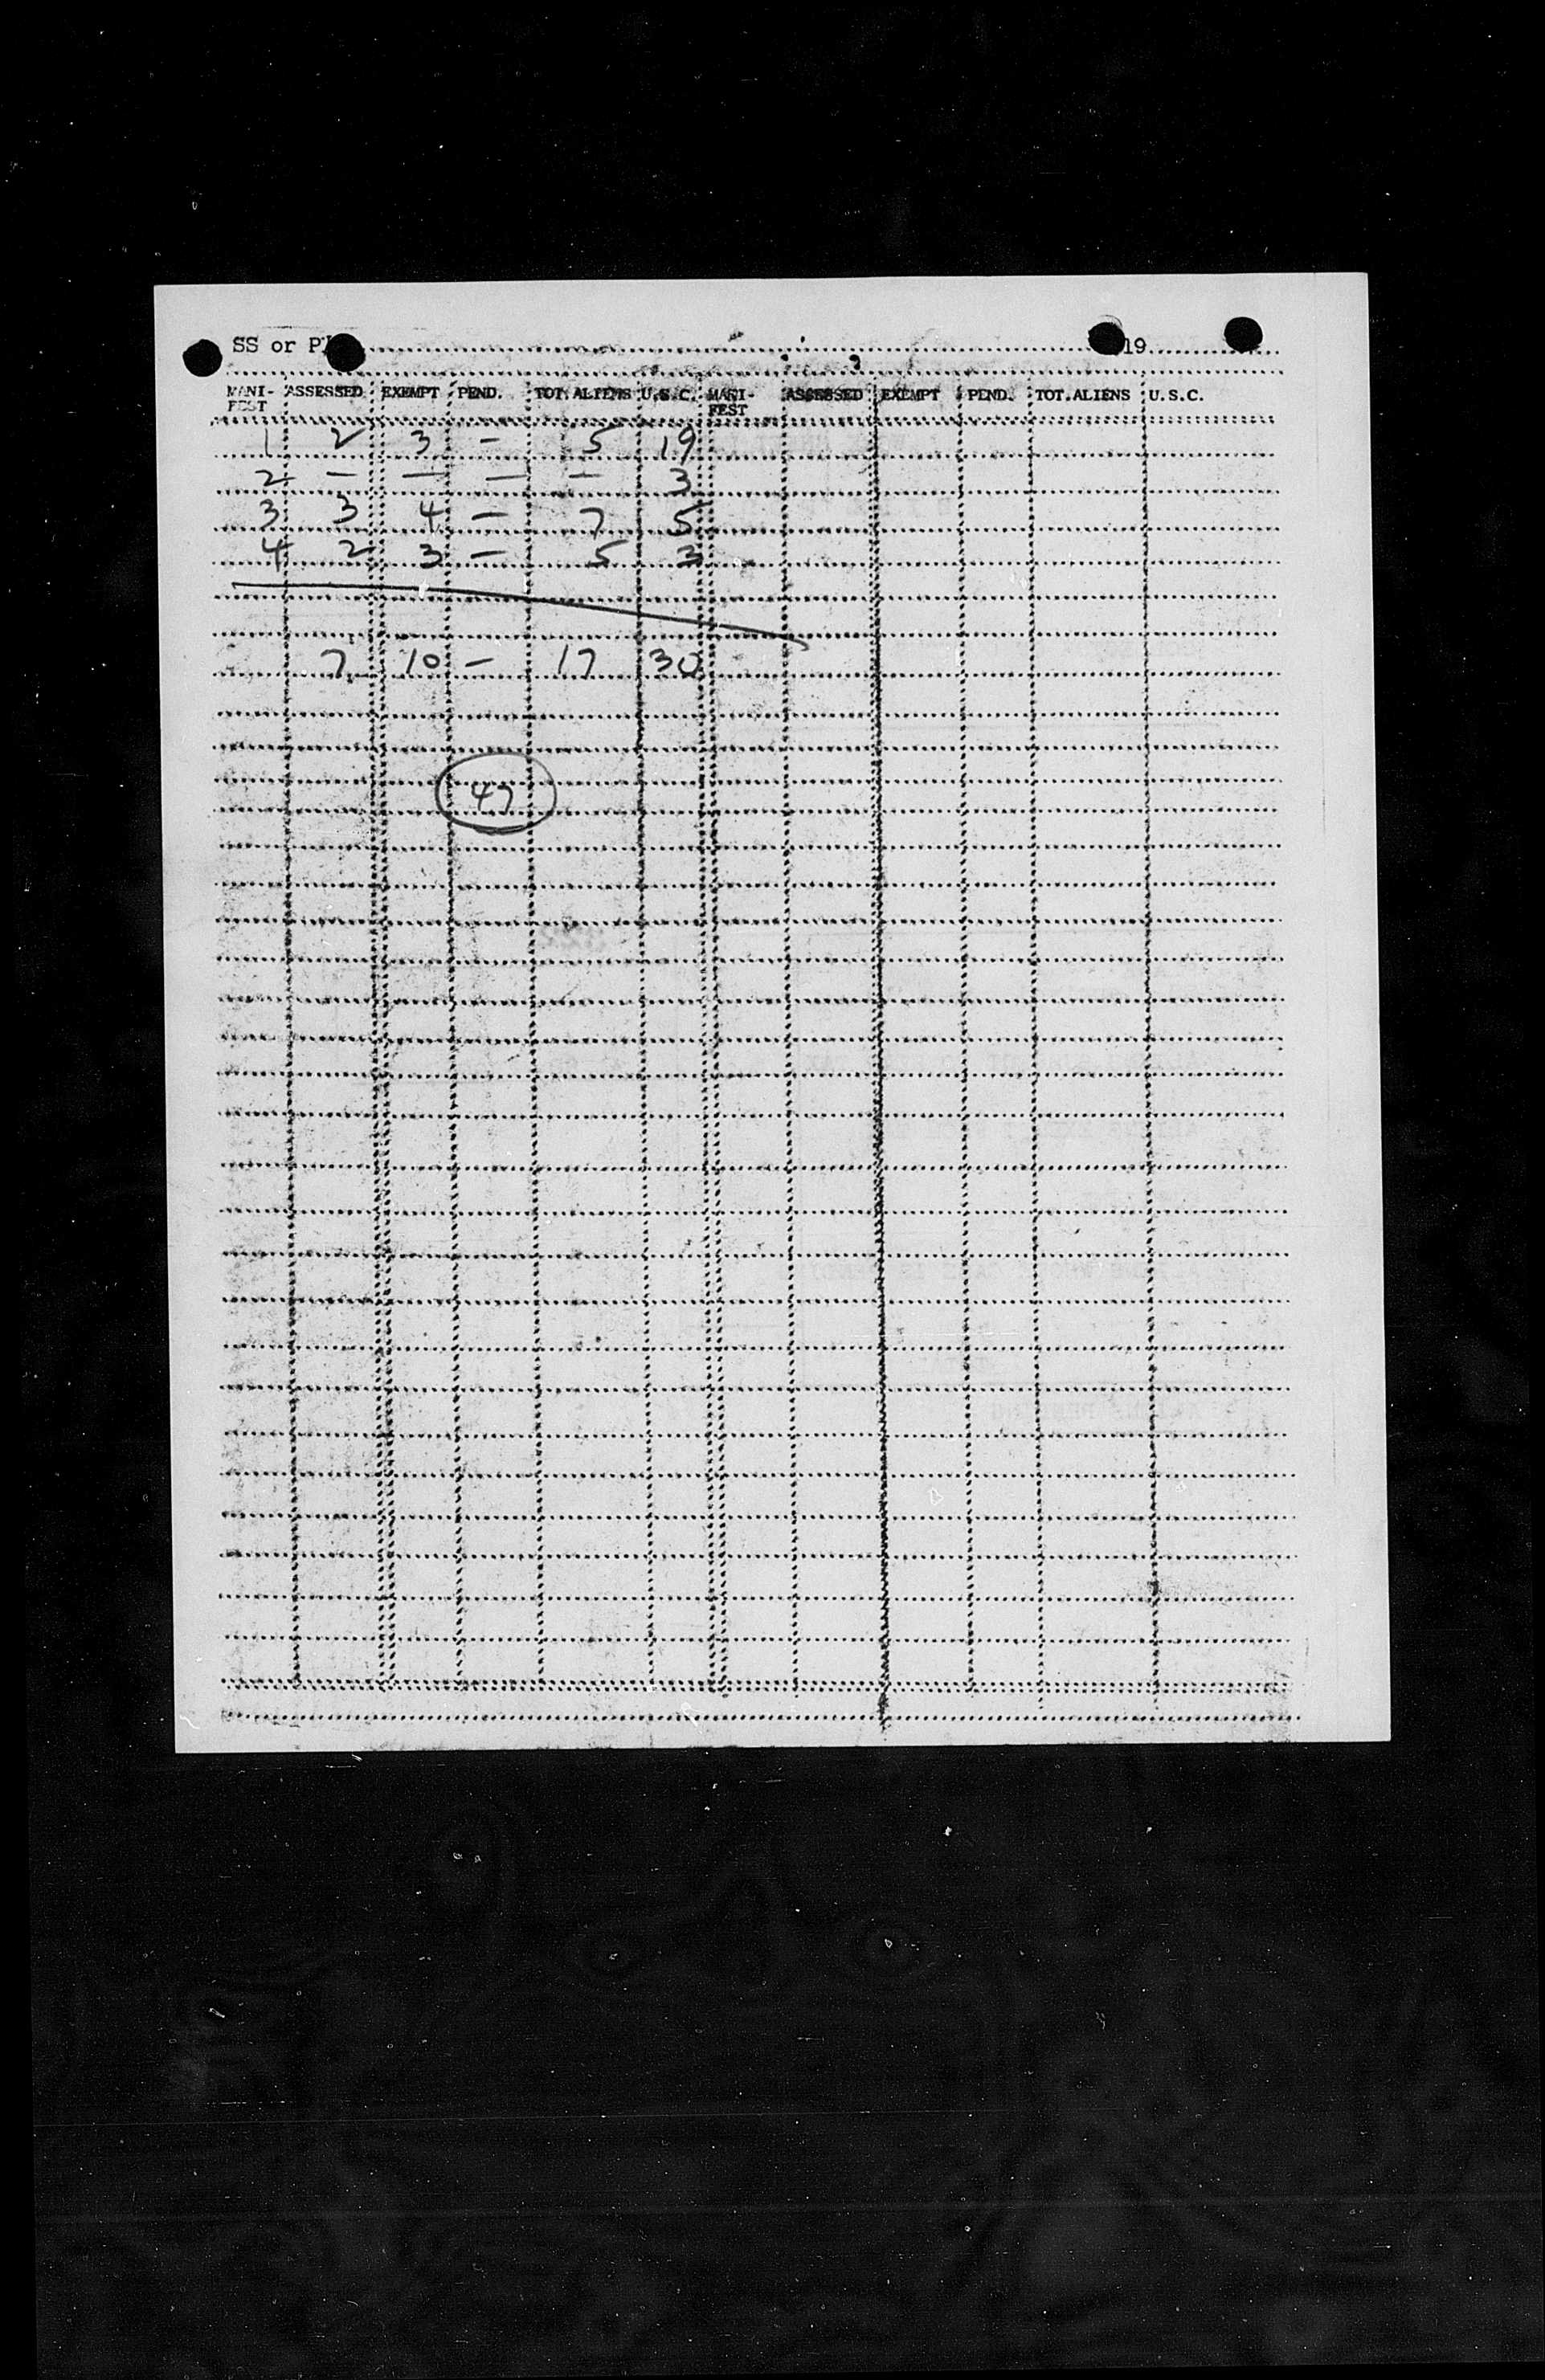 SS or Pl 19
MANI- ASSESSED EXEMPT PEND. TOT. ALIENS U.S.C. MANI- ASSESSED EXEMPT PEND. TOT. ALIENS U.S.C.
FEST FEST
1 2 3 - 5 19
2 - - - - 3
3 3 4 - 7 5
4 2 3 - 5 3
7 10 - 17 30
47